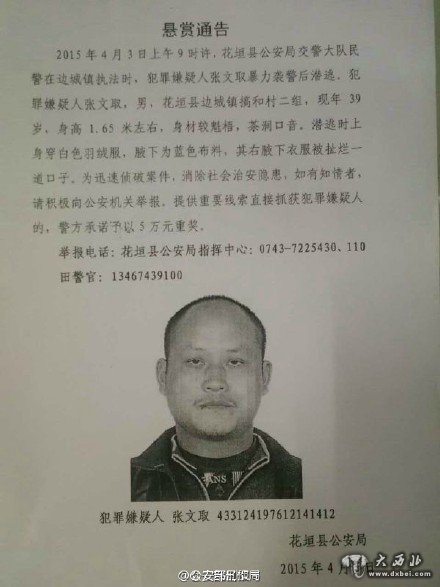 悬赏通告
2015年4月3日上午9时许，花垣县公安局交警大队民
警在边城镇执法时，犯罪嫌疑人张文取暴力袭警后潜逃。犯
罪嫌疑人张文取，男，花垣县边城镇摘和村二组，现年39
岁，身高1.65米左右，身材较魁梧，茶洞口音。潜逃时上
身穿白色羽绒服，腋下为蓝色布料，其右腋下衣服被扯烂一
道口子。为迅速侦破案件，消除社会治安隐患，如有知情者，
请积极向公安机关举报。提供重要线索直接抓获犯罪嫌疑人
的，警方承诺予以5万元重奖。
举报电话：花垣县公安局指挥中心：0743-7225430、110
田警官：13467439100
犯罪嫌疑人 张文取 433124197612141412
花垣县公安局
2015年4月 日
大西北
www.dxbei.com
@公安部刑侦局